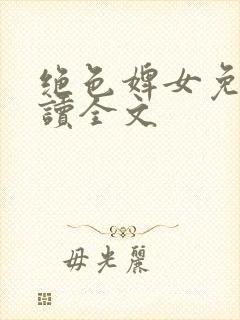 绝色婢女免
讀全文
毋光麗